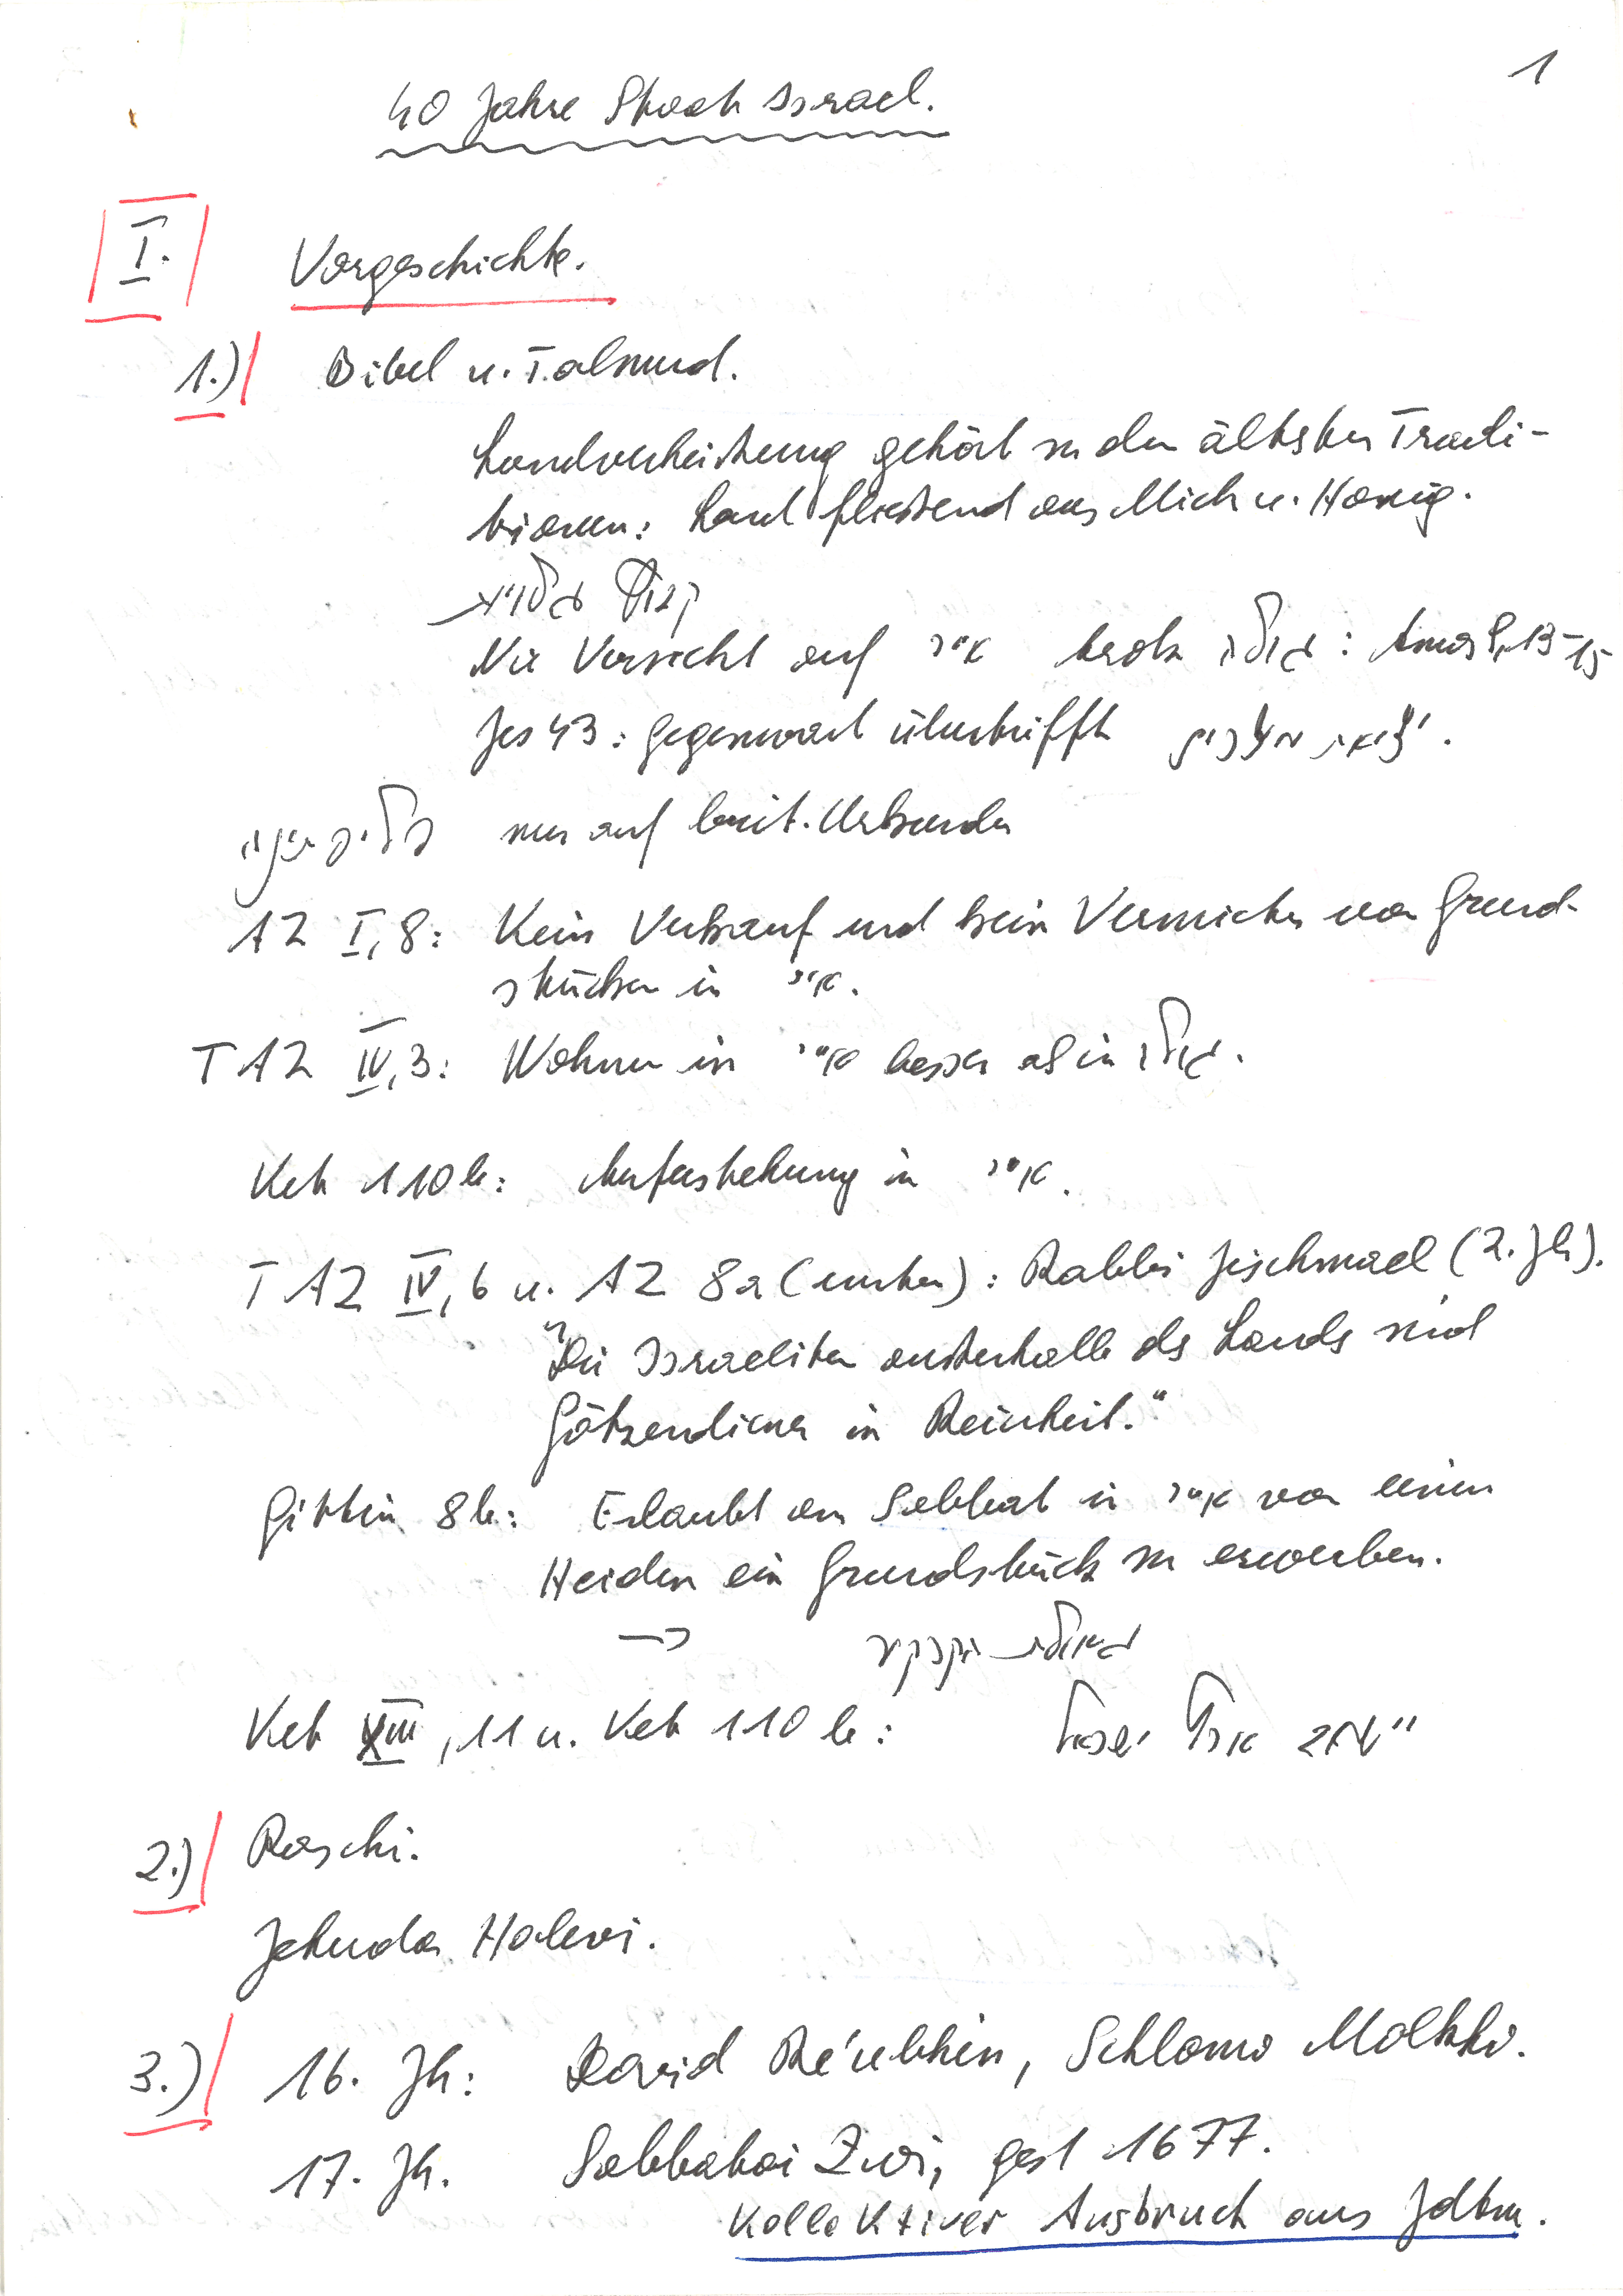 1
40 Jahre Staat Israel.
I. Vorgeschichte.
1.) Bibel u. Talmud.
Landverheißung gehört zu den ältesten Tradi-
tionen: Land fließend aus Milch u. Honig.
Nie Verzicht auf א״י trotz גולה: Amos 9,13-15
Jes 43: Gegenwart übertrifft יציאת מצרים.
nur auf bibl. Urkunden
AZ I,8: Kein Verkauf und kein Vermieten von Grund-
stücken in א״י.
T AZ IV,3: Wohnen in א״י besser als in גולה.
Ket 110b: Auferstehung in א״י.
T AZ IV,6 u. AZ 8a (unten): Rabbi Jischmael (2. Jh).
"Die Israeliten außerhalb des Lands sind
Götzendiener in Reinheit."
Gittin 8b: Erlaubt am Sabbat in א״י von einem
Heiden ein Grundstück zu erwerben.
→ גאולת הקרקע
Ket XIII,11 u. Ket 110b:
2.) Raschi.
Jehuda Halevi.
3.) 16. Jh: David Re'ubhen, Schlomo Molkho.
17. Jh. Sabbatai Zwi, gest 1677.
Kollektiver Ausbruch aus Jdtm.